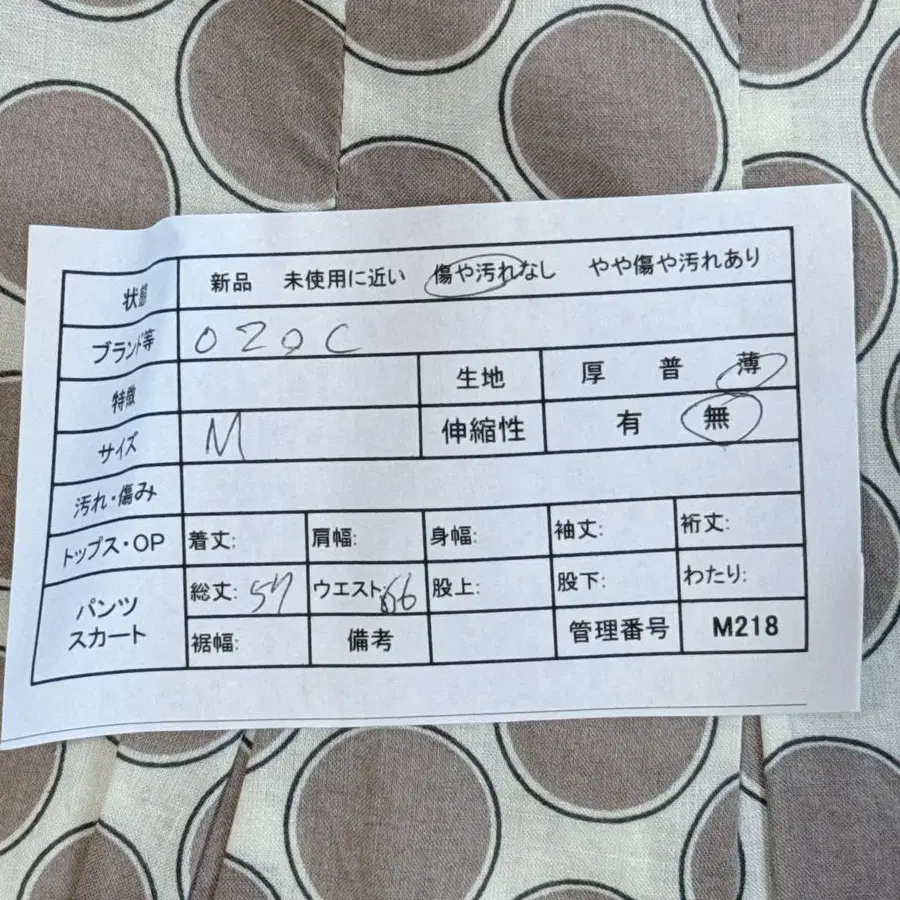 状態 新品 未使用に近い 傷や汚れなし やや傷や汚れあり
ブランド等 OZOC
特徴 生地 厚 普 薄
サイズ M 伸縮性 有 無
汚れ・傷み
トップス・OP 着丈: 肩幅: 身幅: 袖丈: 裄丈:
パンツ スカート 総丈: 57 ウエスト: 66 股上: 股下: わたり:
裾幅: 備考 管理番号 M218